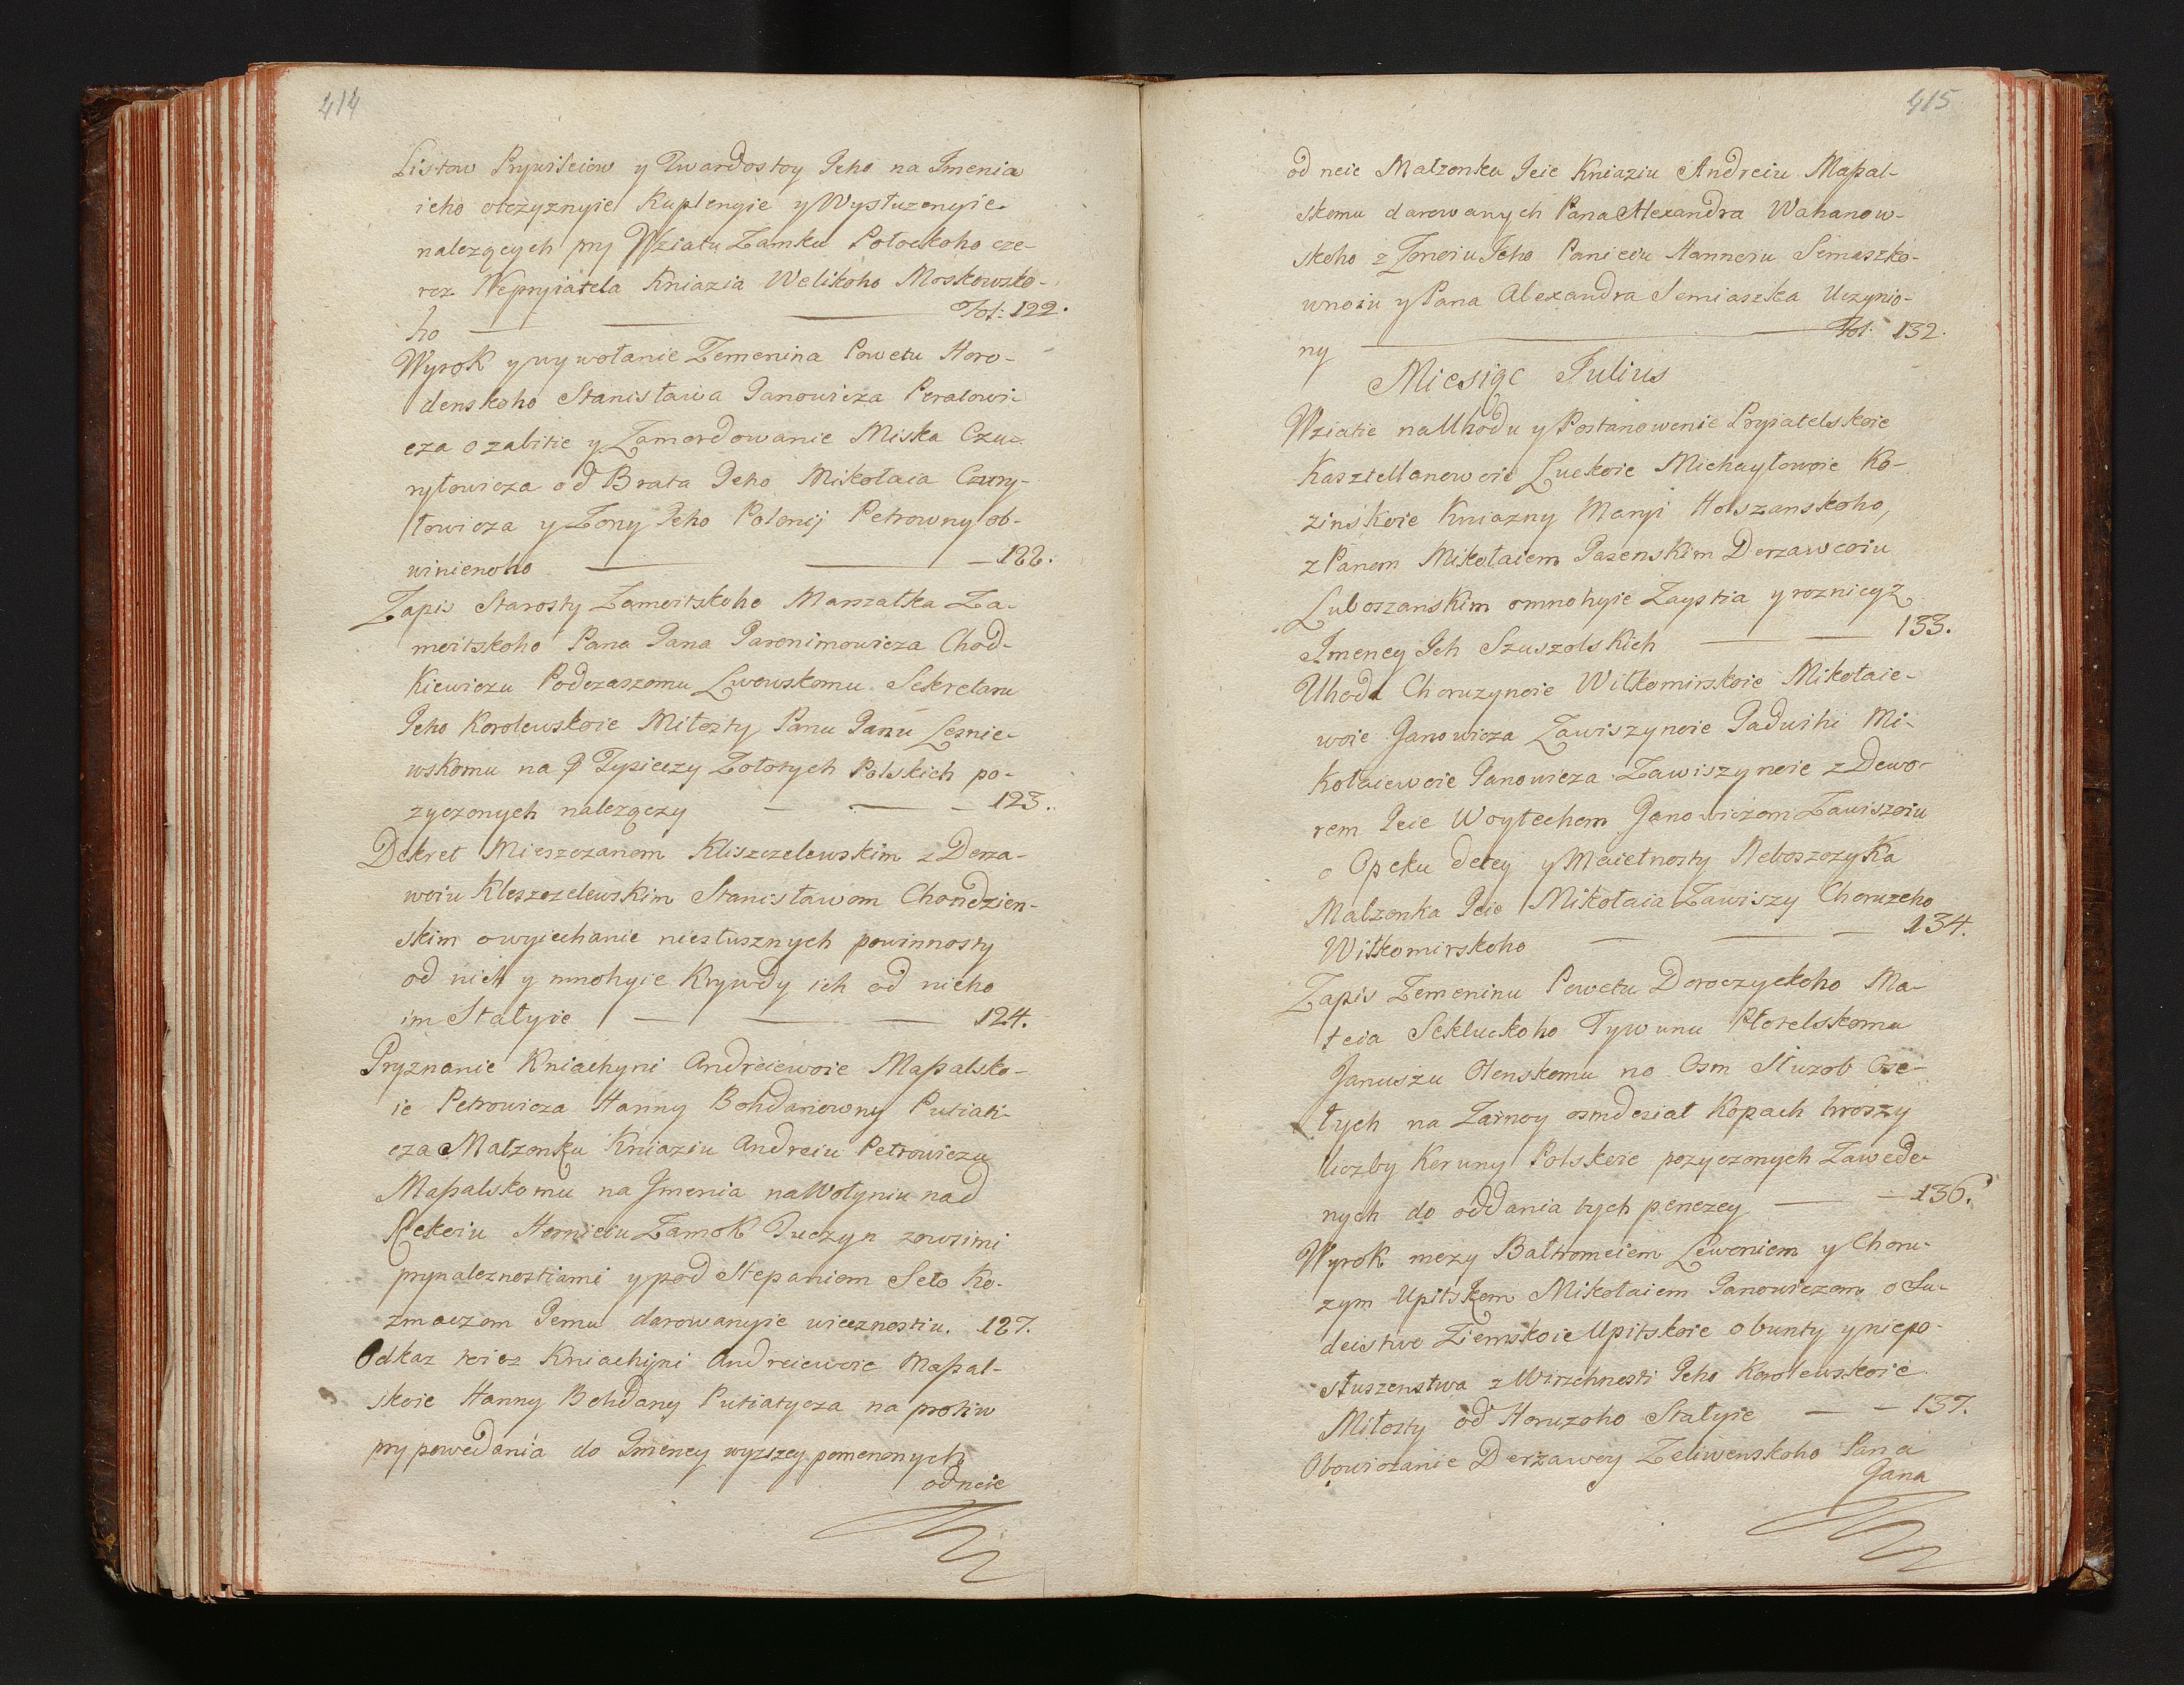 414
Listow Prywileiow y Twardostoy Jeho na Imenia
ieho otczyznyie Kuplenyie y Wysłuzenyie
nalezących pry Wziatu Zamku Połockoho cze-
rez Nepryiatela Kniazia Welikoho Moskowsko-
ho Fol: 122.
Wyrok y wywołanie Zemenina Powetu Horo-
denskoho Stanisława Janowicza Peralowi-
cza o zabitie y Zamordowanie Miska Czu-
ryłowicza od Brata Jeho Mikołaia Czury-
łowicza y Zony Jeho Polonij Petrowny ob-
winienoho 122.
Zapis Starosty Zamoitskoho Marszałka Za-
moitskoho Pana Jana Jaronimowicza Chod-
kiewiczu Podczaszomu Lwowskomu Sekretaru
Jeho Korolewskoie Miłosty Panu Janu Lesnie-
wskomu na Tysieczy Zołotych Polskich po-
zyczonych nalezączy 123.
Dekret Mieszczanom Kliszczelewskim z Derza-
wciu Kleszczelewskim Stanisławom Chondzien-
skim o wyiechanie niesłusznych powinnosty
od nich y mnohyie Krywdy ich od nieho
im Stałyie 124.
Pryznanie Kniachyni Andreiewoie Masalsko-
ie Petrowicza Hanny Bohdanowny Putiati-
cza Małzonku Kniaziu Andreiu Petrowiczu
Masalskomu na Imenia na Wołyniu nad
Rekoiu Horniciu Zamok Tuczyn zowsimi
prynaleznostiami y pod Stepaniem Seło Ko-
zmaczom Jemu darowanyie wiecznostiu. 127.
Odkaz toież Kniachyni Andreiewoie Masal-
skoie Hanny Bohdany Putiatycza na protiw
prypowedania do Imeney wyzszey pomenenych
od neie
415
od neie Malzonku Jeie Kniaziu Andreiu Masal-
skomu darowanych Pana Alexandra Wahanow-
skoho z Zonoiu Jeho Panieiu Hannoiu Semaszko-
wnoiu y Pana Alexandra Semiaszka Uczynio-
ny Fol: 132.
Miesiąc Julius
Wziatie na Uhodu y Postanowenie Pryiatelskoie
Kasztellanowoie Luckoie Michayłowoie Ko-
zinskoie Kniazny Maryi Holszanskoho,
z Panom Mikołaiem Jasenskim Derzawcoiu
Luboszanskim o mnohyie Zaystia y roznicyż
Imeney Jch Szuszolskich 133.
Uhoda Choruzynoie Wiłkomirskoie Mikołaie-
woie Janowicza Zawiszynoie Jadwihi Mi-
kołaiewoie Janowicza Zawiszynoie z Dewo-
rem Jeie Woytechom Janowiczom Zawiszoiu
o Opeku detey y Maietnosty Neboszczyka
Malzonka Jeie Mikołaia Zawiszy Choruzoho
Wiłkomirskoho 134.
Zapis Zemeninu Powetu Doroczyckoho Ma-
teia Sekluckoho Tywunu Płotelskomu
Januszu Olenskomu no Osm Służob Ose-
łych na Zarnoy osmdesiat Kopach hroszy
liczby Koruny Polskoie pozyczonych Zawede-
nych do oddania tych penezey 136.
Wyrok mezy Baltromeiem Lewoniem y Choru-
zym Upitskom Mikołaiem Janowiczom o Su-
deistwo Ziemskoie Upitskoie o bunty y niepo-
słuszenstwa z Wirzchnosti Jeho Korolewskoie
Miłosty od Horuzoho Stałyie 137.
Obowiozanie Derzawcy Zeliwenskoho Pana
Jana